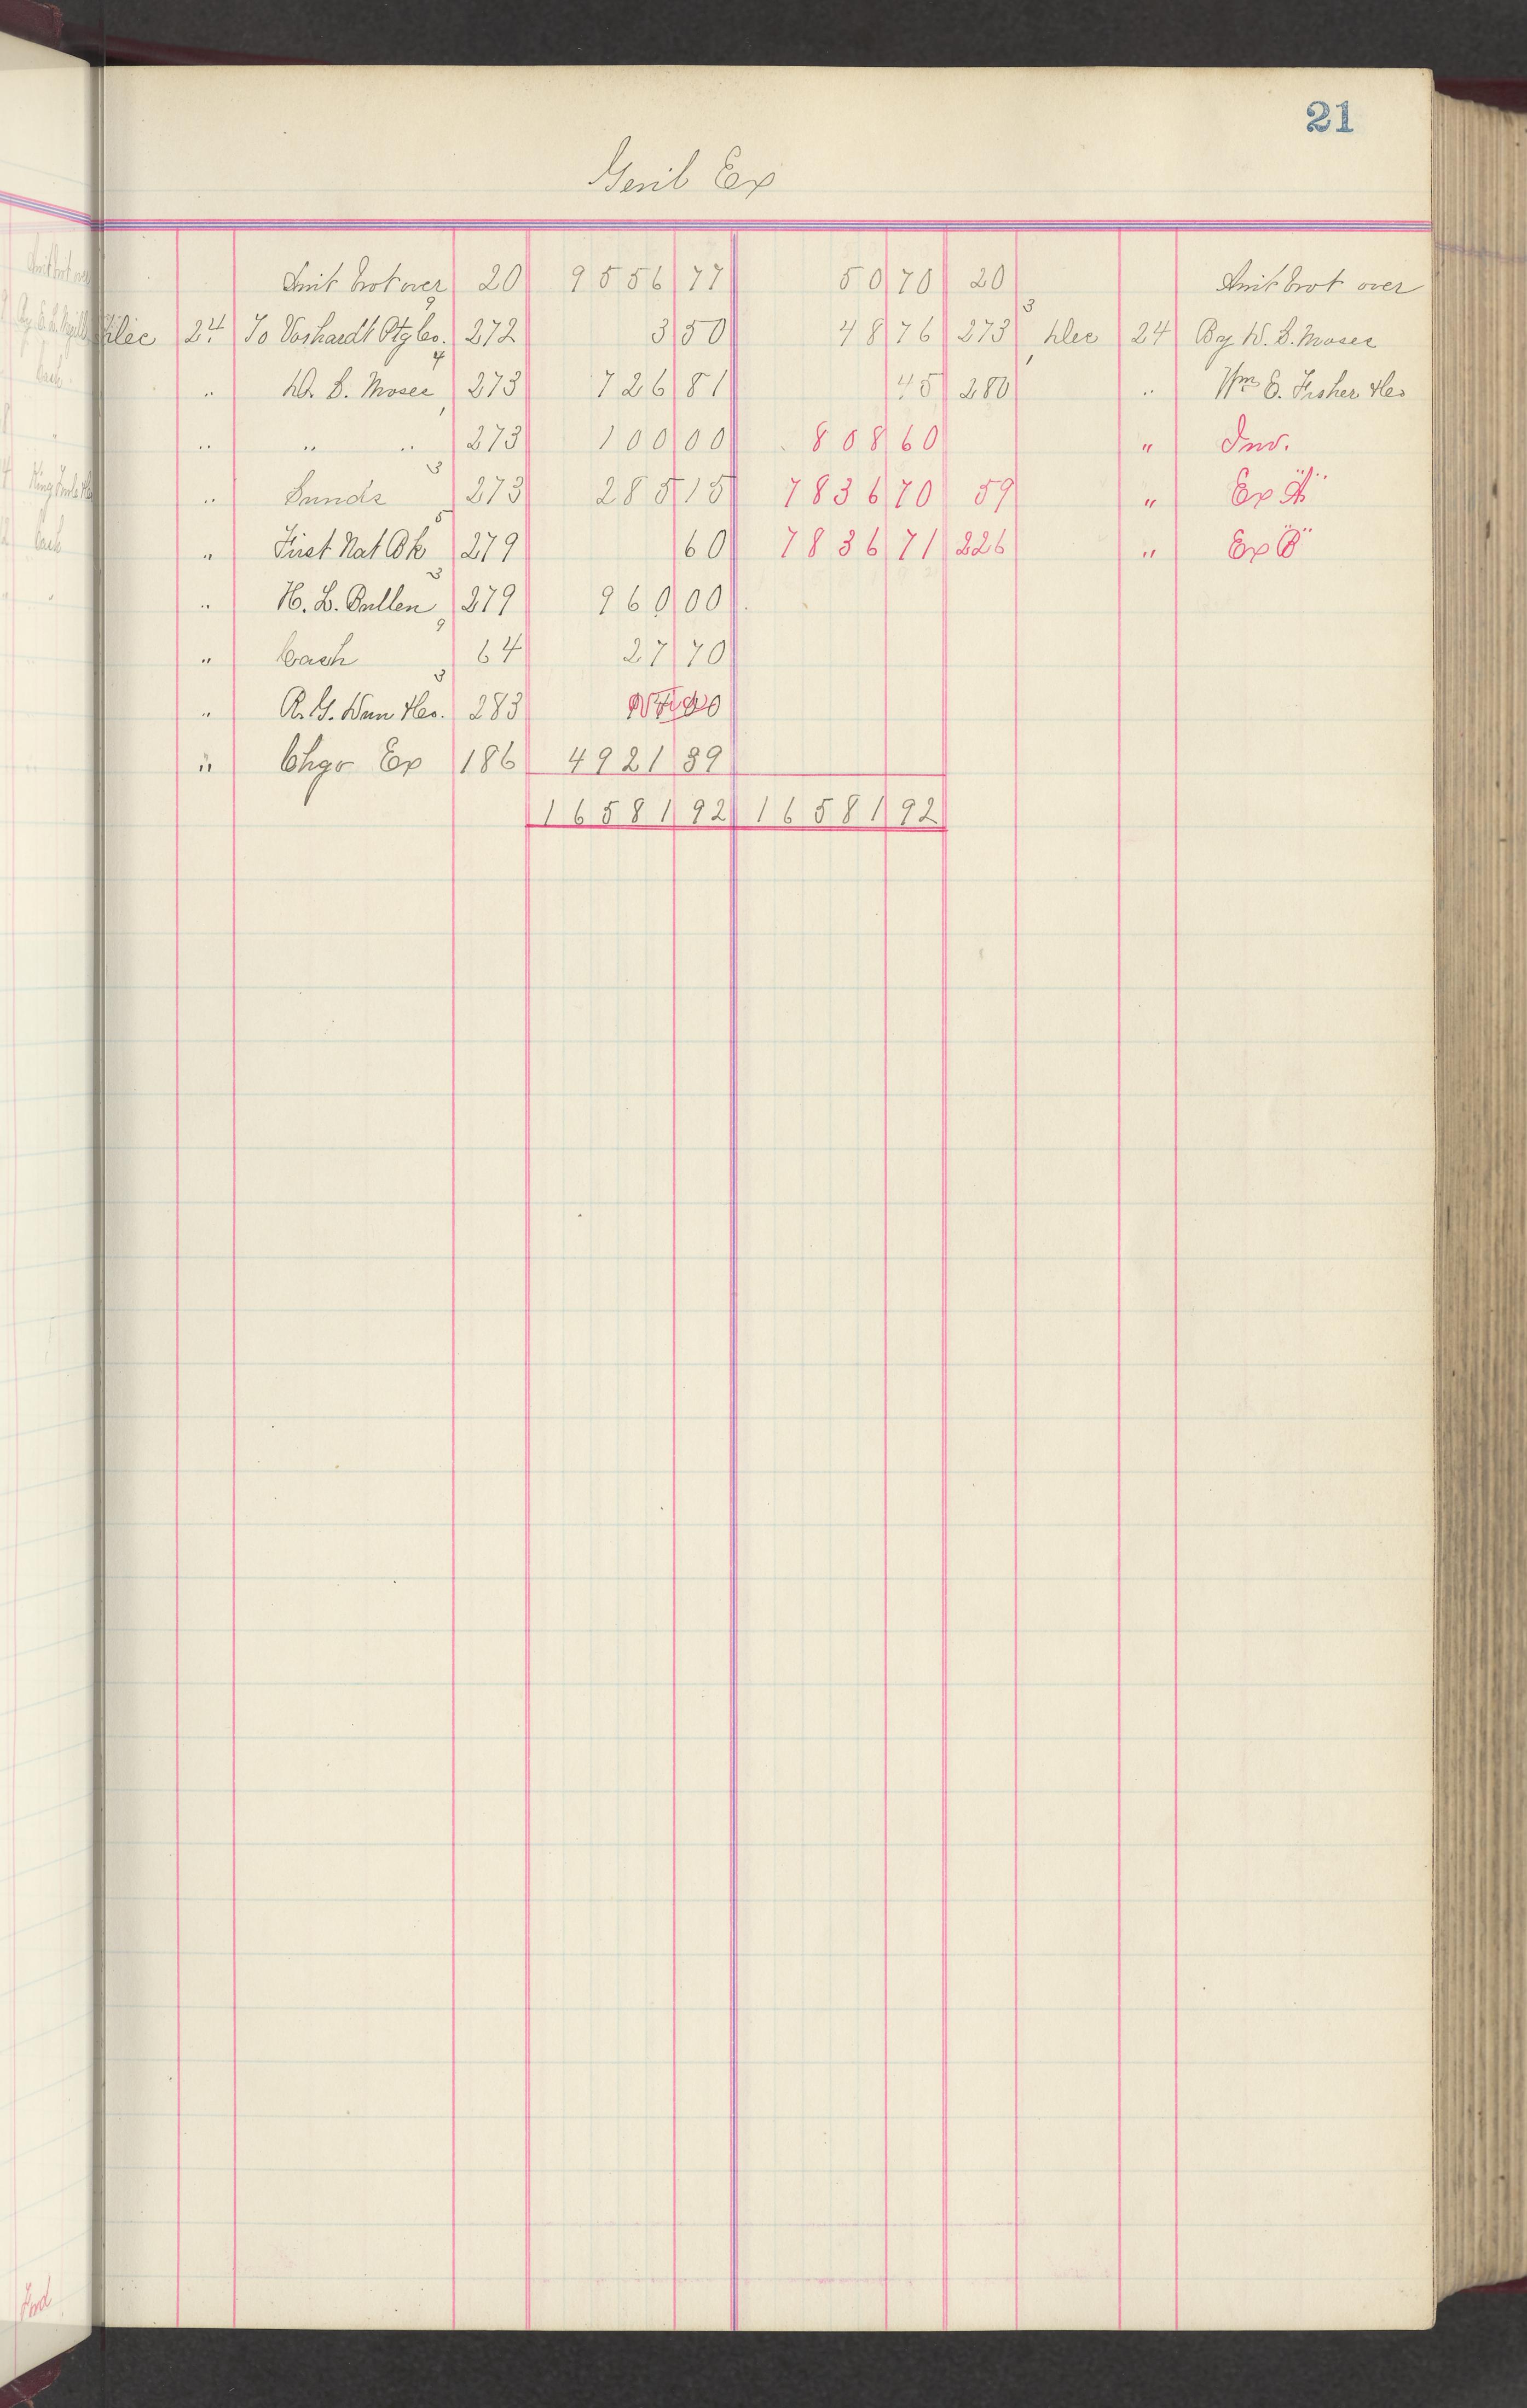 21
Genl Ex
Amt brot over 20 9556 77 50 70 20 Amt brot over
Dec 24 To Voshardt Ptg Co. 272 3 50 48 76 273 Dec 24 By D. S. Moses
" D. S. Moses 273 726 81 45 280 " Wm E. Fisher & Co
" " " 273 100 00 808 60 " Inv.
" Sunds 273 285 15 7836 70 59 " Ex "A"
" First Nat Bk 279 60 7836 71 226 " Ex "B"
" H. L. Bullen 279 960 00
" Cash 64 27 70
" R. G. Dun & Co. 283
" Chgo Ex 186 4921 39
16581 92 16581 92